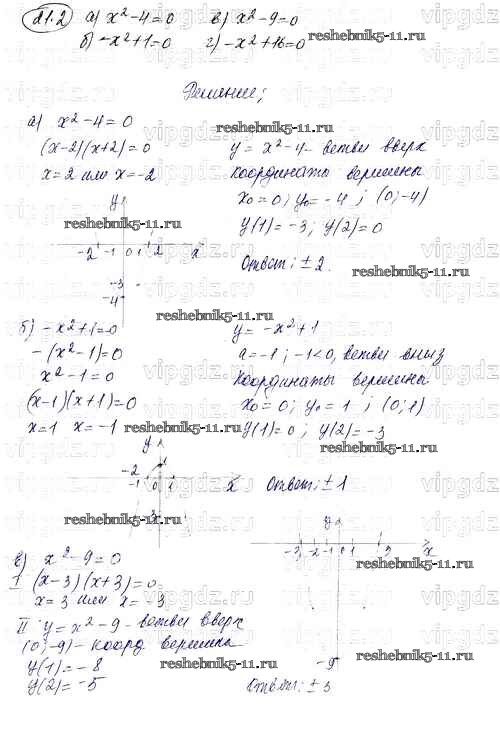 21.2 а) x²-4=0 в) x²-9=0
б) -x²+1=0 г) -x²+16=0
reshebnik5-11.ru
Решение:
reshebnik5-11.ru
а) x²-4=0
(x-2)(x+2)=0
x=2 или x=-2
y=x²-4 - ветви вверх
координаты вершины
x₀=0; y₀=-4; (0;-4)
y(1)=-3; y(2)=0
Ответ: ±2.
y
reshebnik5-11.ru
-2 -1 0 1 2 x
-3
-4
reshebnik5-11.ru
б) -x²+1=0
-(x²-1)=0
x²-1=0
(x-1)(x+1)=0
x=1 x=-1
y=-x²+1
a=-1; -1<0, ветви вниз
Координаты вершины
x₀=0; y₀=1; (0;1)
y(1)=0; y(2)=-3
reshebnik5-11.ru
y
-2 1
-1 0 1 x
-3
Ответ: ±1
reshebnik5-11.ru
reshebnik5-11.ru
в) x²-9=0
I (x-3)(x+3)=0
x=3 или x=-3
II y=x²-9 - ветви вверх
(0;-9) - коорд вершина
y(1)=-8
y(2)=-5
y
-3 -2 -1 0 1 3 x
-9
reshebnik5-11.ru
Ответ: ±3
vipgdz.ru